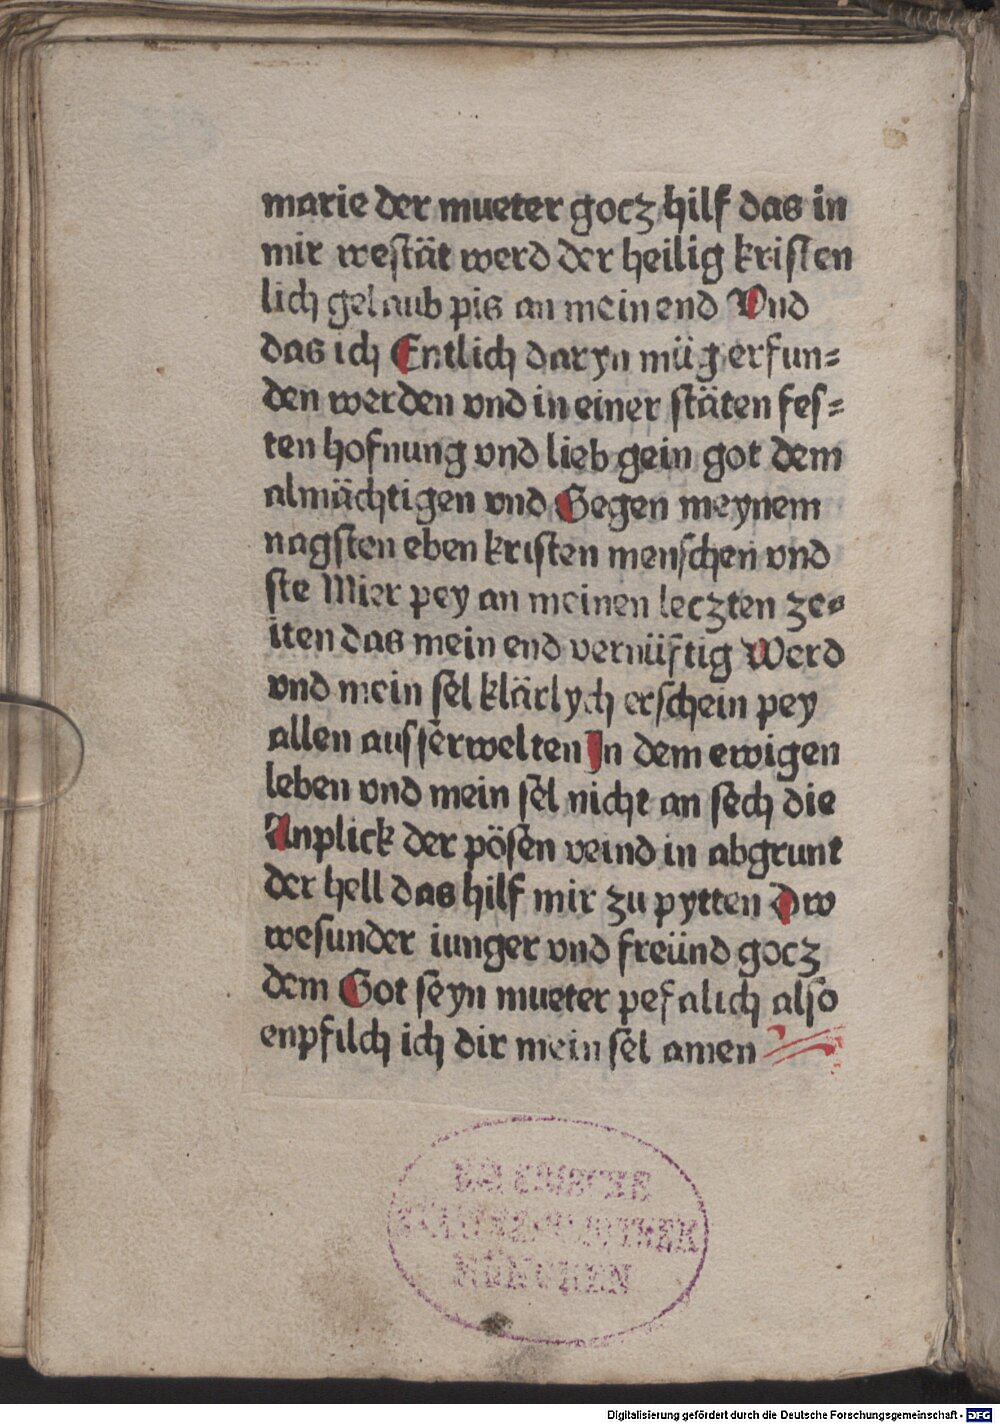 marie der mueter gocz hilf das in
mir westät werd der heilig kristen
lich gelaub pis an mein end Vnd
das ich Entlich daryn müg erfun=
den werden vnd in einer stäten fes=
ten hofnung vnd lieb gein got dem
almächtigen vnd Gegen meynem
nagsten eben kristen menschen vnd
ste Mier pey an meinen leczten ze=
iten das mein end vernüftig Werd
vnd mein sel klärlych erschein pey
allen ausserwelten In dem ewigen
leben vnd mein sel nicht an sech die
Anplick der pösen veind in abgrunt
der hell das hilf mir zu pytten Dw
wesunder iunger vnd freünd gocz
dem Got seyn mueter pefalich also
enpfilch ich dir mein sel amen
BAYERISCHE
STAATSBIBLIOTHEK
MÜNCHEN
Digitalisierung gefördert durch die Deutsche Forschungsgemeinschaft - DFG